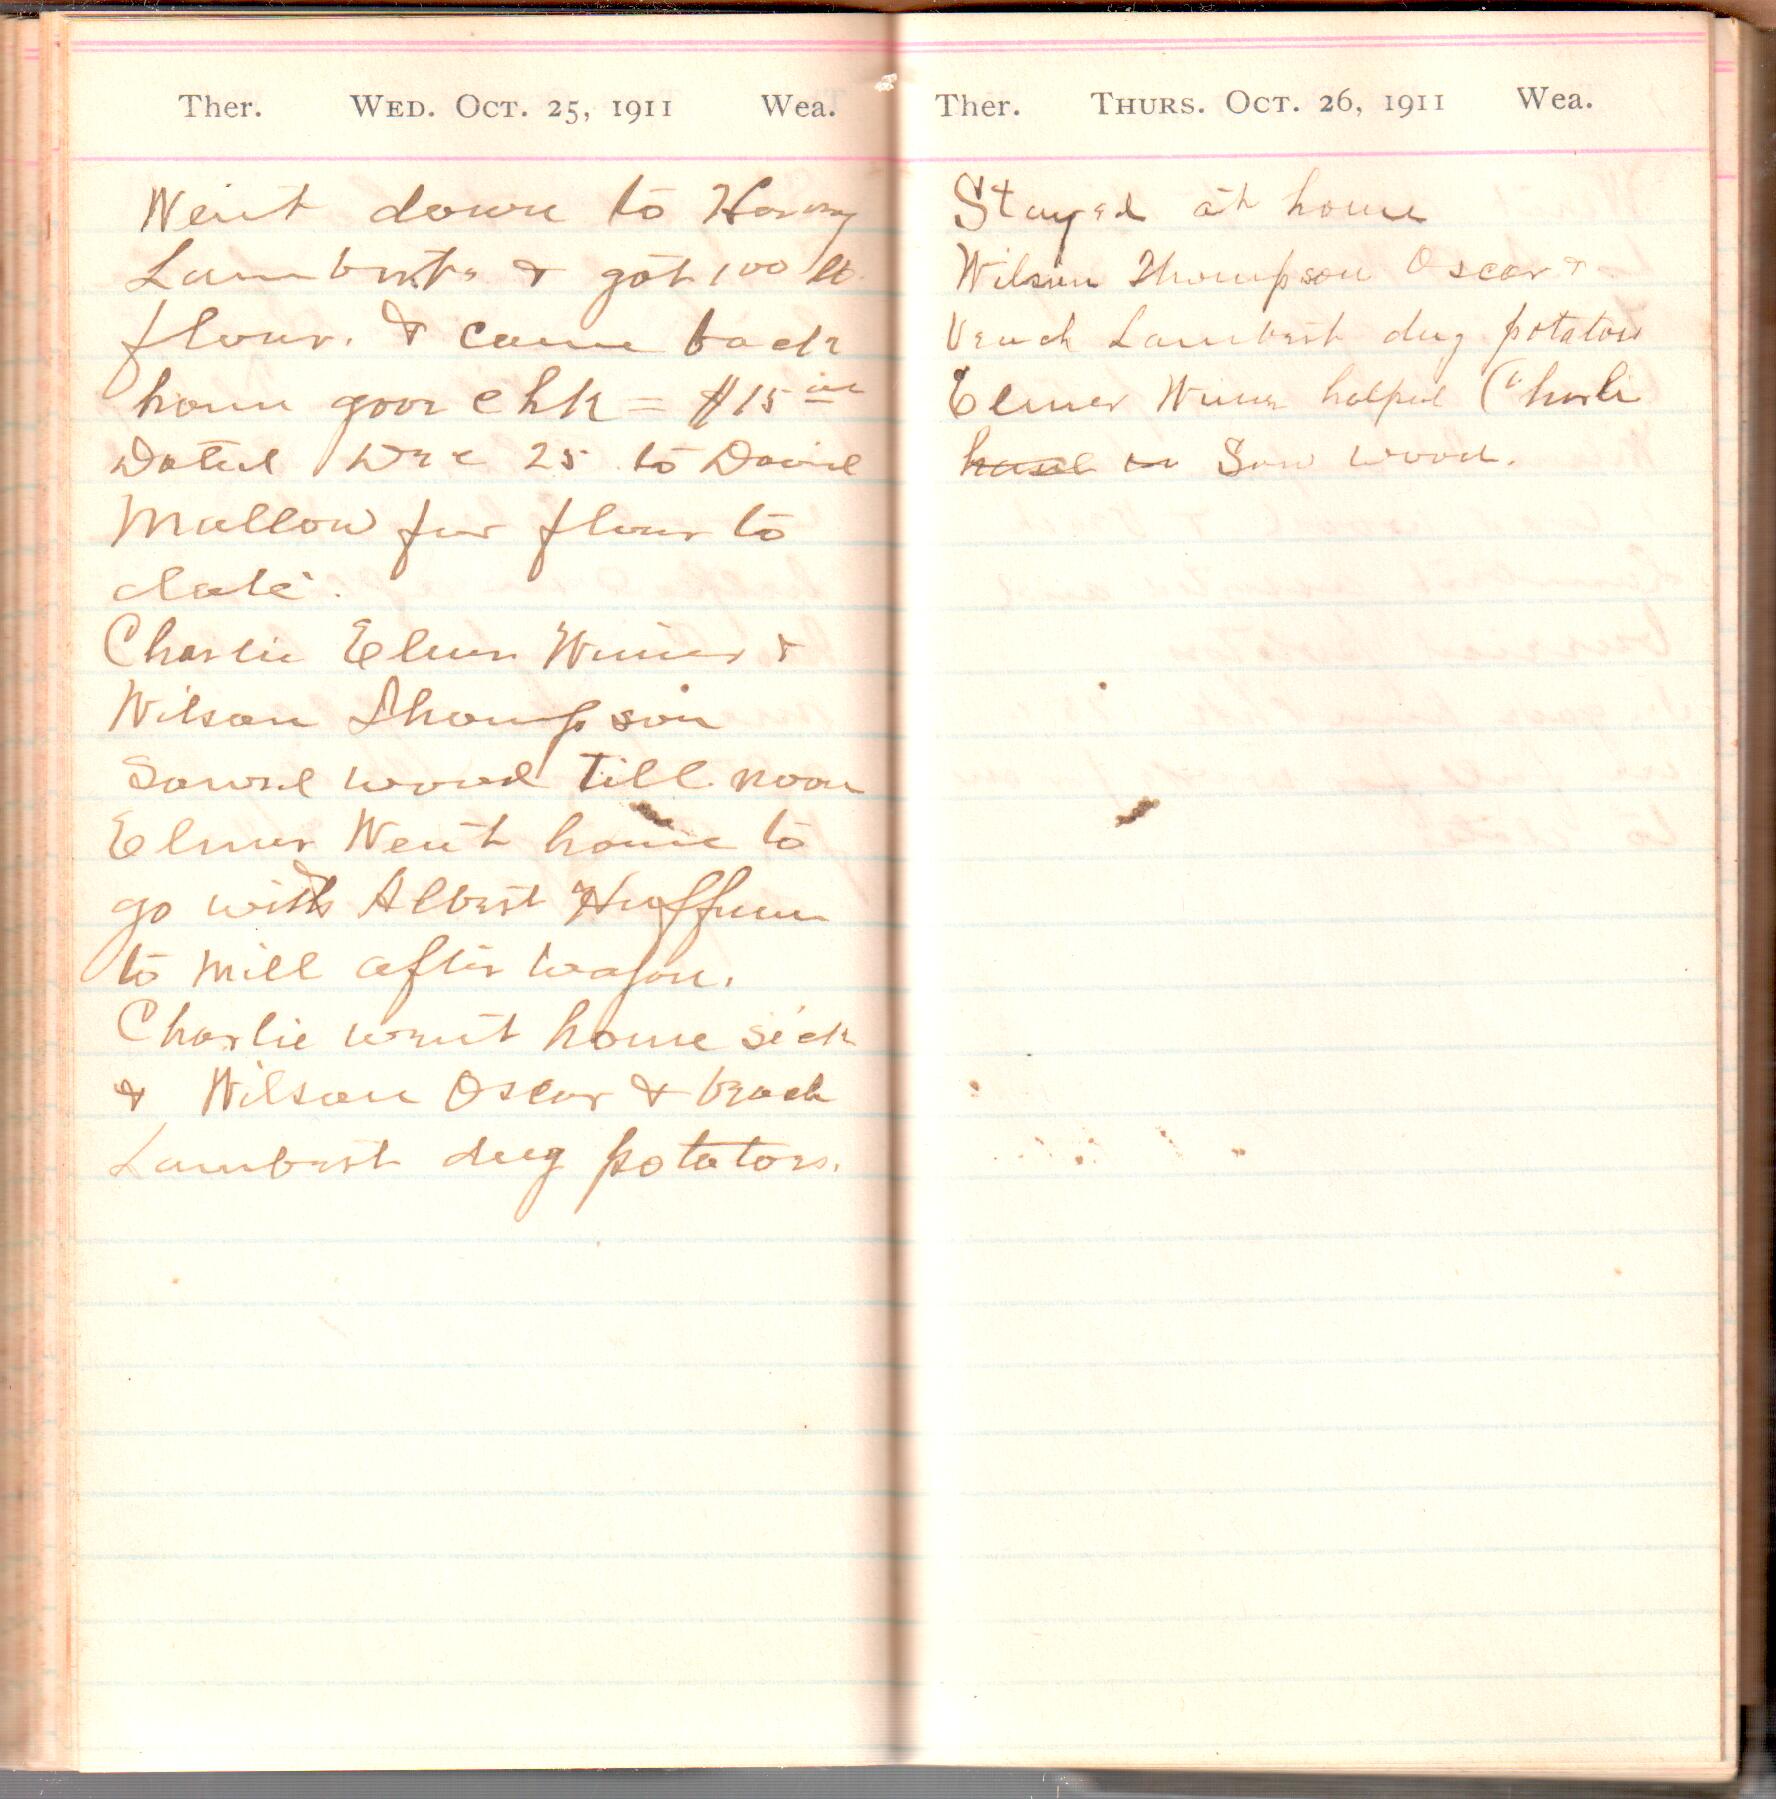 Ther. WED. OCT. 25, 1911 Wea.
Went down to Harvey
Lamberts & got 100 lb
flour. & came back
home gave chk = $15
Dated Dec 25 to David
Mallow for flour to
date.
Charlie Elmer Wimer &
Wilson Thompson
Sawed wood till noon
Elmer Went home to
go with Albert Huffman
to mill after wagon.
Charlie went home sick
& Wilson Oscar & Veach
Lambert dug potatoes.
Ther. THURS. OCT. 26, 1911 Wea.
Stayed at home
Wilson Thompson Oscar &
Veach Lambert dug potatoes
Elmer Wimer helped Charlie
haul in Saw wood.